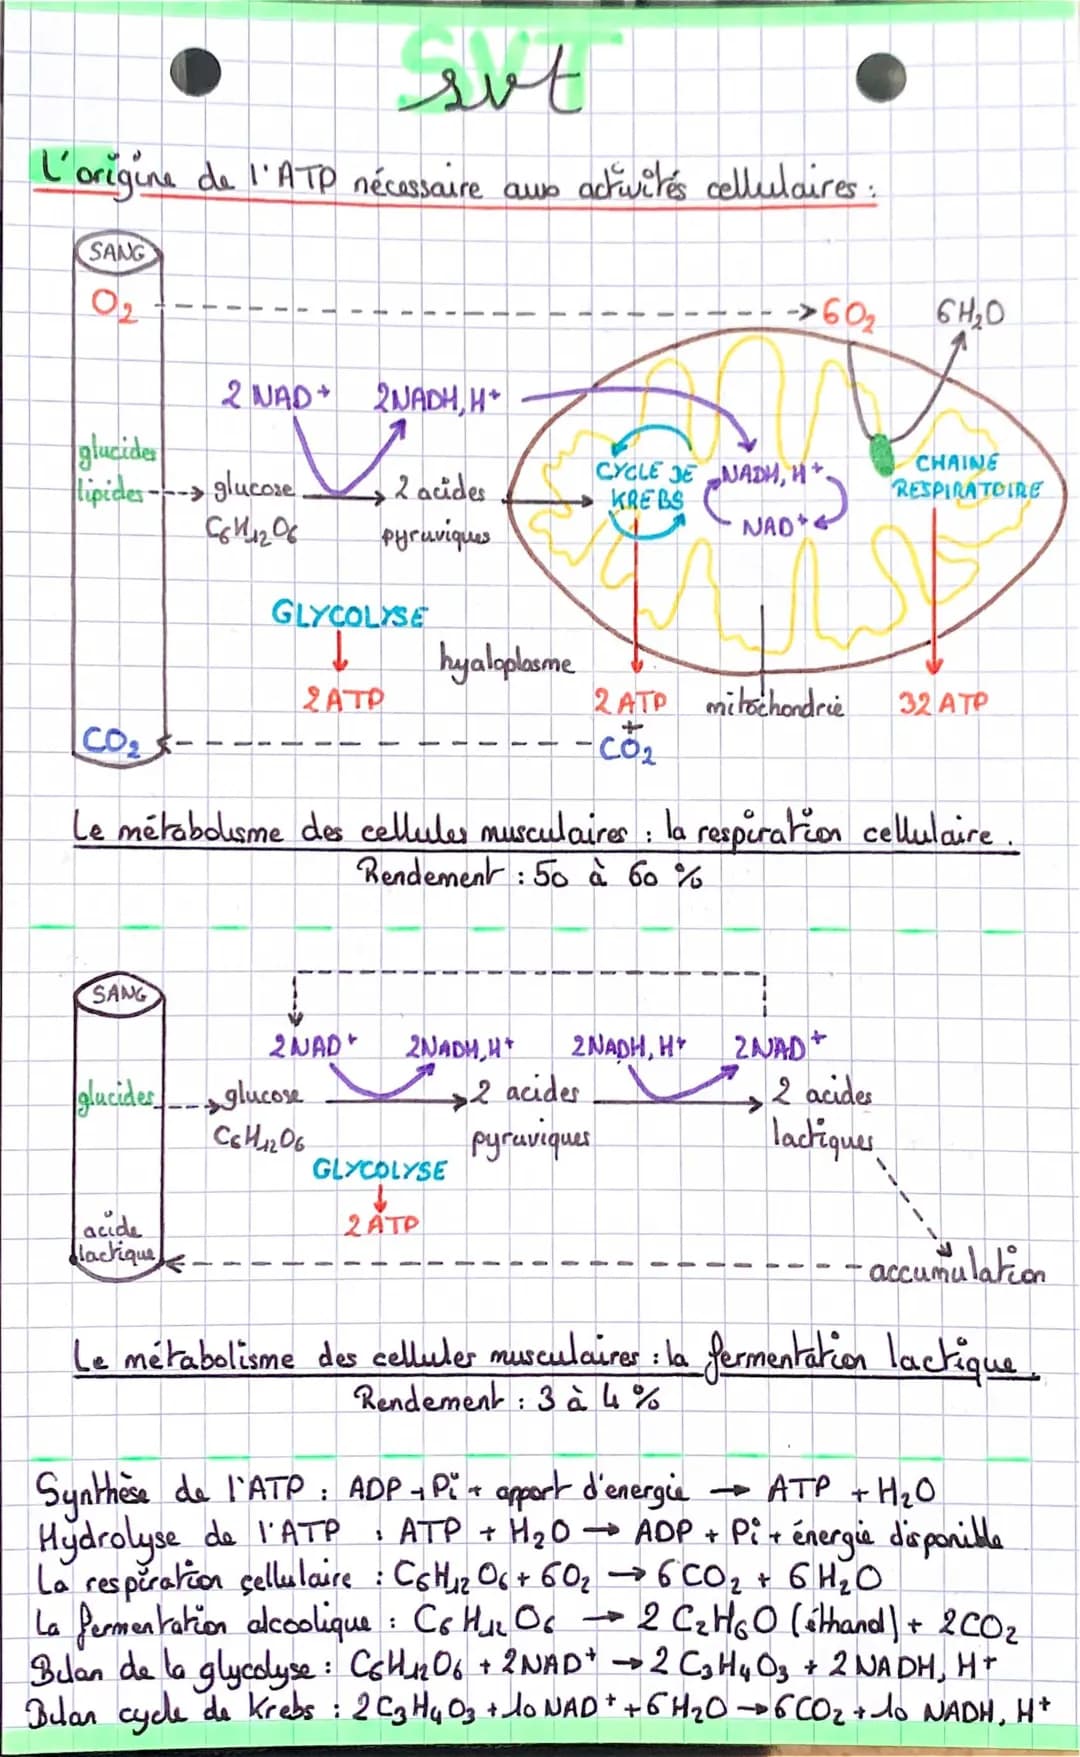 SVT
svt
L'origine de l'ATP nécessaire aux activités cellulaires :
SANG
O₂ 6O₂ 6H₂O
2 NAD+ 2NADH, H+
glucides
lipides glucose 2 acides
C₆H₁₂O₆ pyruviques
CYCLE DE
KREBS
NADH, H+
NAD+
CHAINE
RESPIRATOIRE
GLYCOLYSE
hyaloplasme
2 ATP 2 ATP mitochondrie 32 ATP
+
CO₂ CO₂
Le métabolisme des cellules musculaires : la respiration cellulaire.
Rendement : 50 à 60 %
SANG
2NAD+ 2NADH, H+ 2NADH, H+ 2NAD+
glucides glucose 2 acides 2 acides
C₆H₁₂O₆ pyruviques lactiques
GLYCOLYSE
2 ATP
acide
lactique accumulation
Le métabolisme des cellules musculaires : la fermentation lactique.
Rendement : 3 à 4 %
Synthèse de l'ATP : ADP + Pi + apport d'énergie → ATP + H₂O
Hydrolyse de l'ATP : ATP + H₂O → ADP + Pi + énergie disponible
La respiration cellulaire : C₆H₁₂O₆ + 6O₂ → 6CO₂ + 6H₂O
La fermentation alcoolique : C₆H₁₂O₆ → 2 C₂H₆O (éthanol) + 2CO₂
Bilan de la glycolyse : C₆H₁₂O₆ + 2NAD+ → 2 C₃H₄O₃ + 2NADH, H+
Bilan cycle de Krebs : 2C₃H₄O₃ + 10 NAD+ + 6H₂O → 6CO₂ + 10 NADH, H+